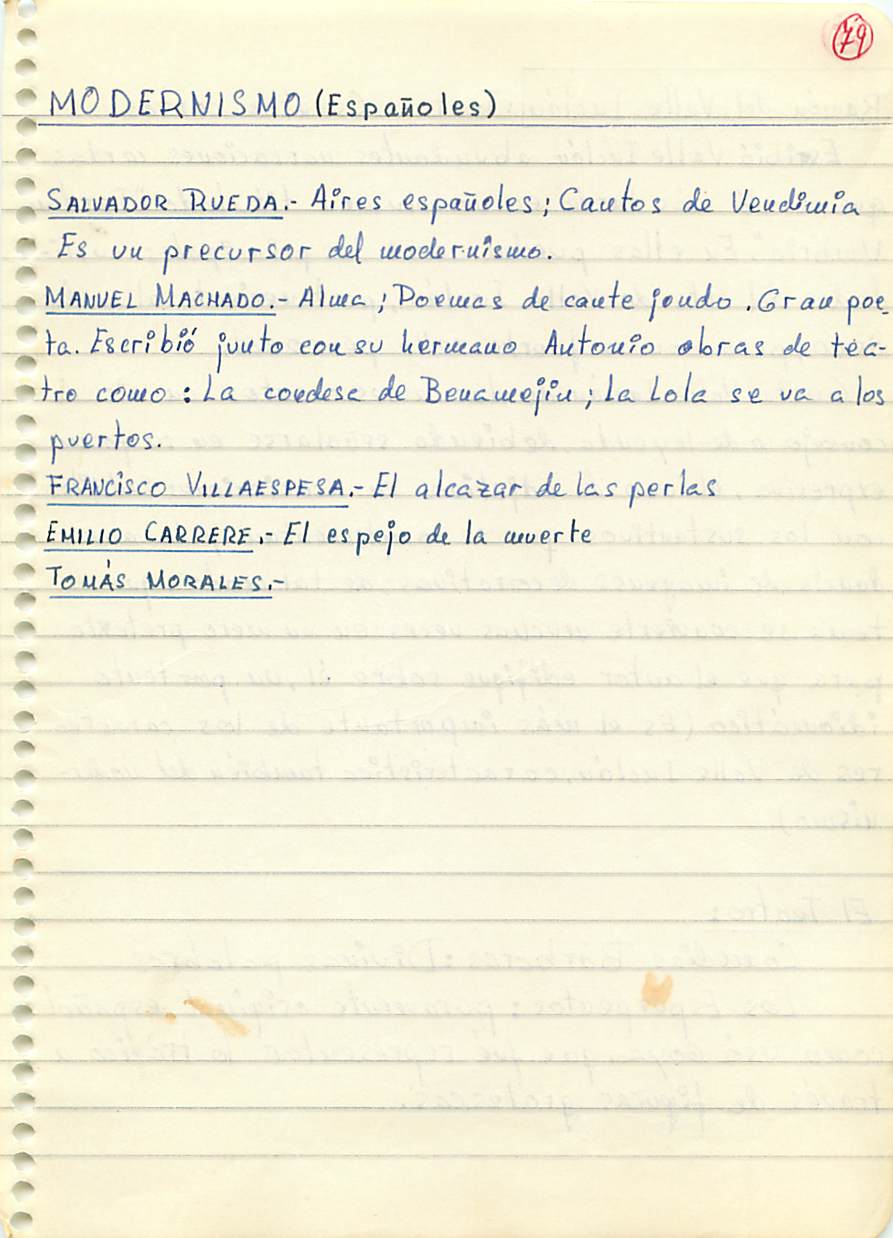 79
MODERNISMO (Españoles)
SALVADOR RUEDA.- Aires españoles; Cantos de Vendimia
Es un precursor del modernismo.
MANUEL MACHADO.- Alma; Poemas de cante jondo. Gran poe-
ta. Escribió junto con su hermano Antonio obras de tea-
tro como: La condesa de Benamejín; La Lola se va a los
puertos.
FRANCISCO VILLAESPESA.- El alcazar de las perlas
EMILIO CARRERE.- El espejo de la muerte
TOMÁS MORALES.-